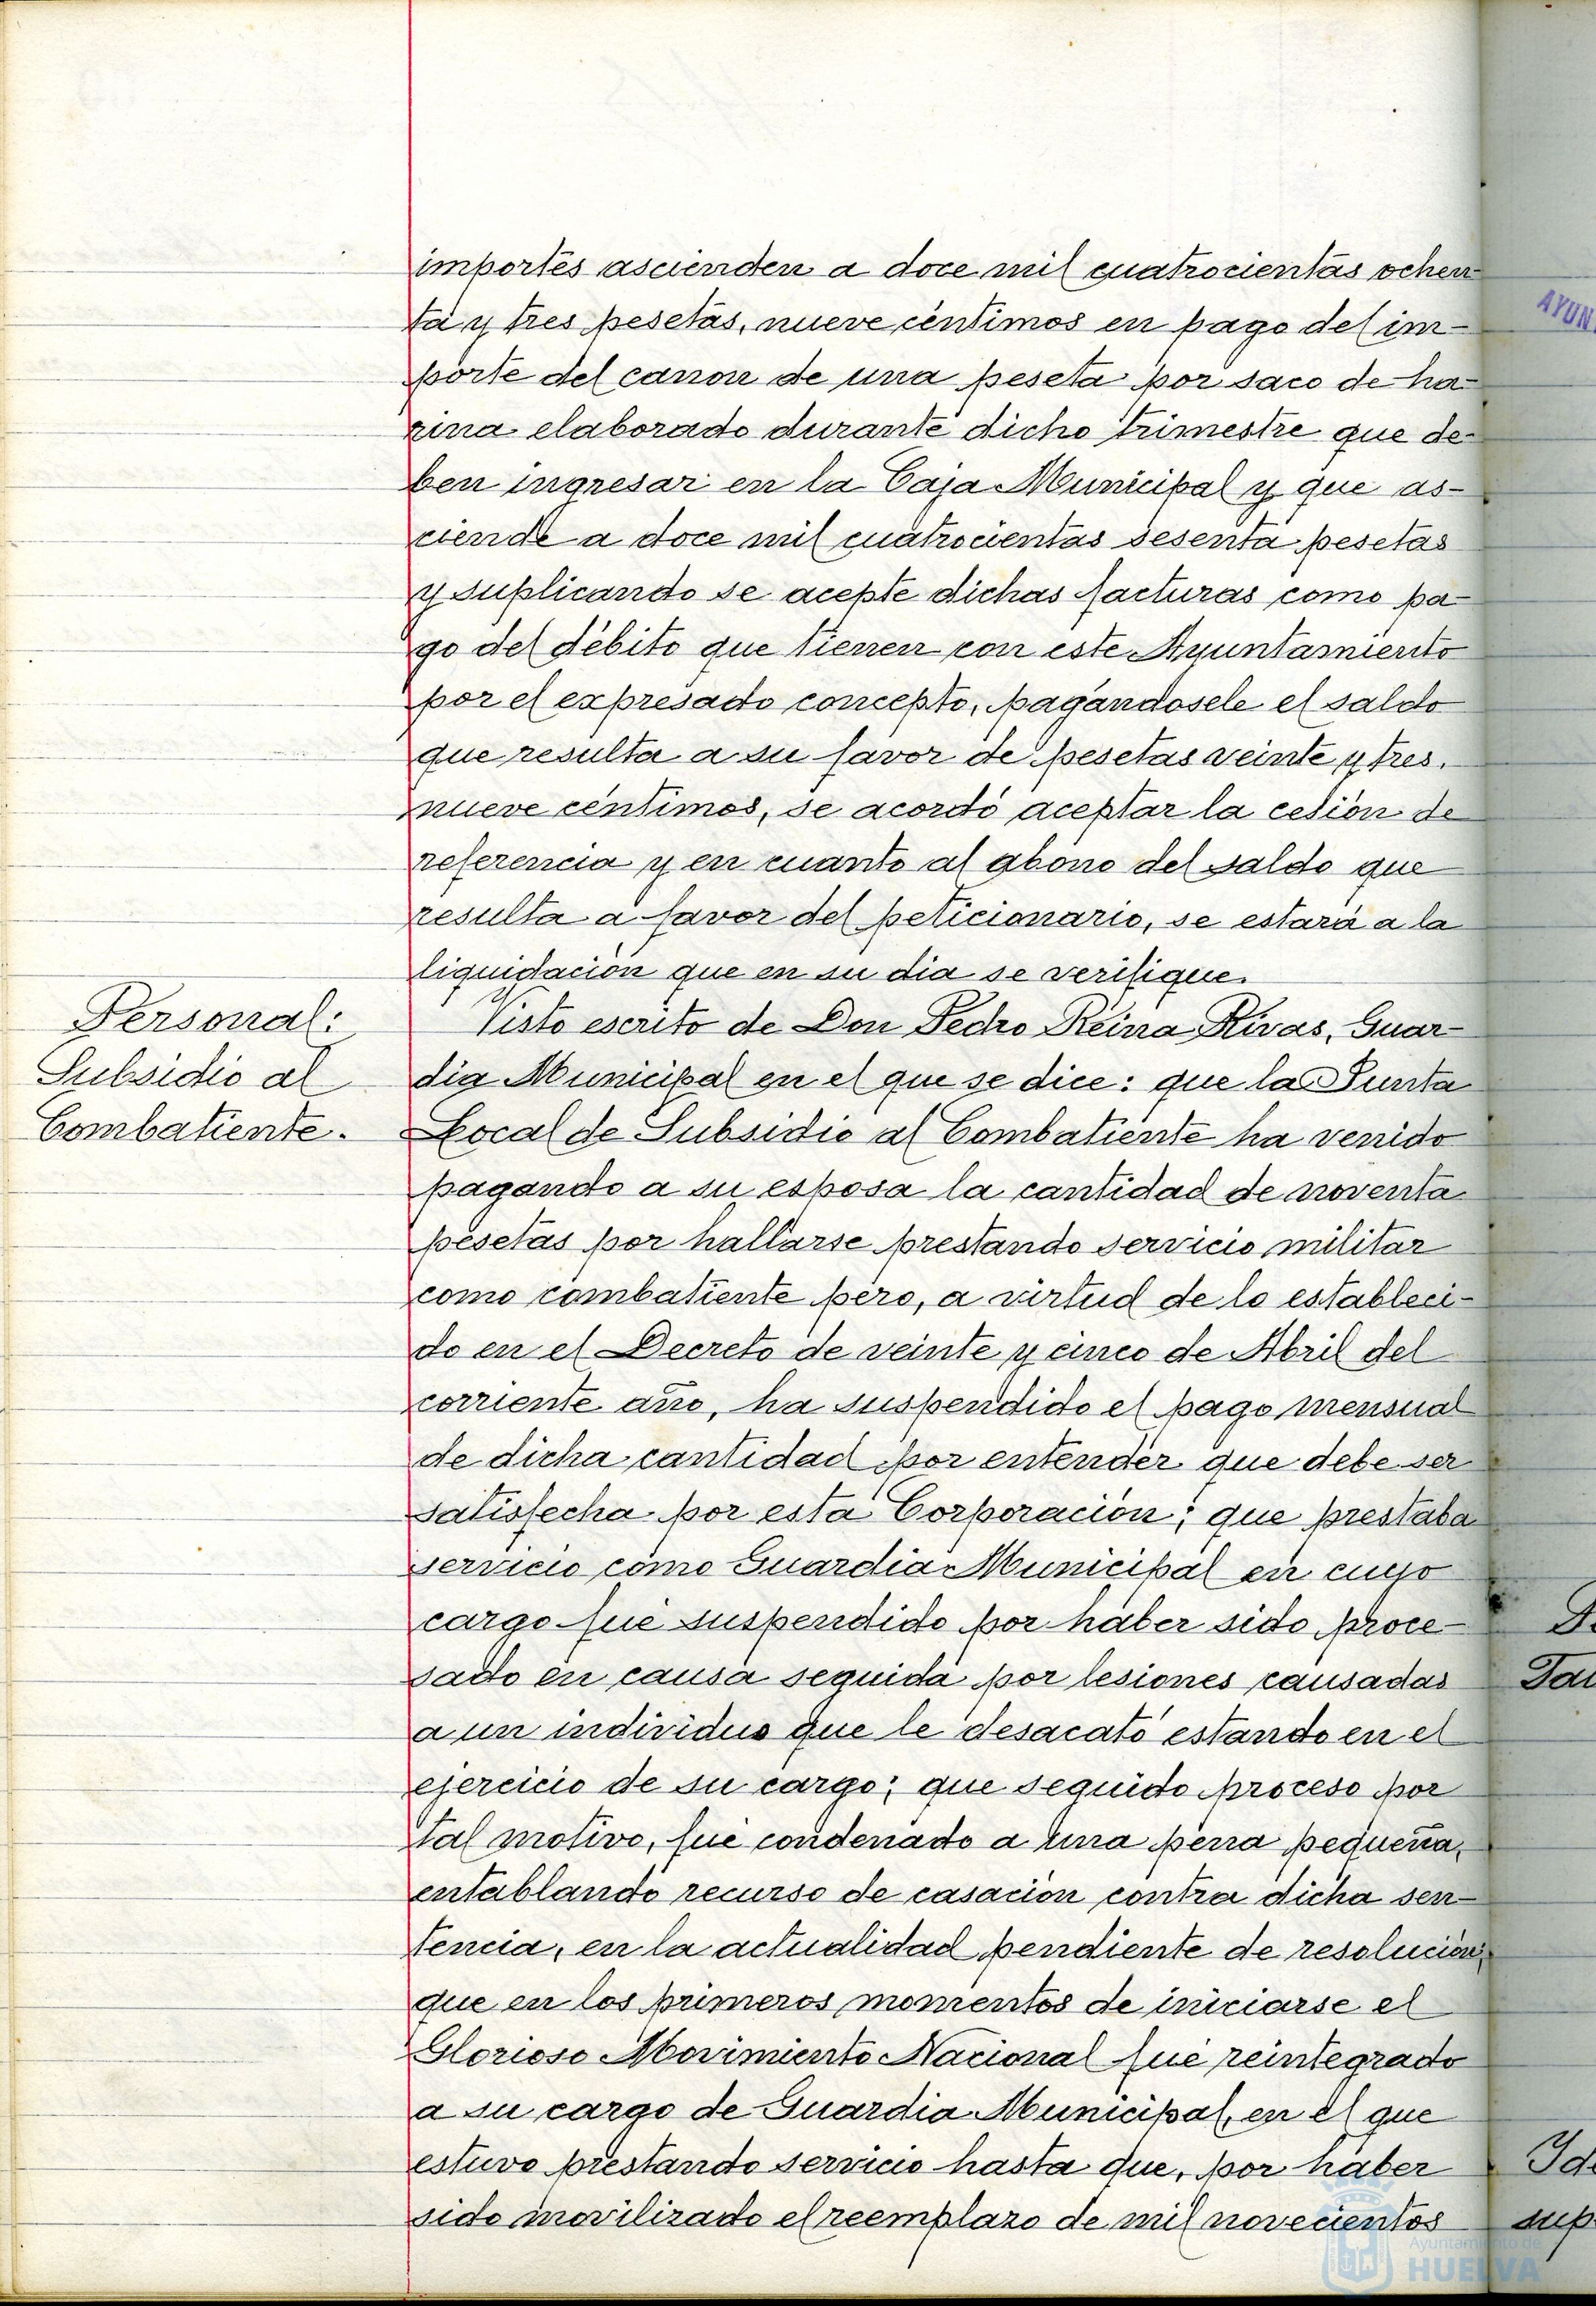 importes ascienden a doce mil cuatrocientas ochen-
ta y tres pesetas, nueve céntimos en pago del im-
porte del canon de una peseta por saco de ha-
rina elaborado durante dicho trimestre que de-
ben ingresar en la Caja Municipal y que as-
ciende a doce mil cuatrocientas sesenta pesetas
y suplicando se acepte dichas facturas como pa-
go del débito que tienen con este Ayuntamiento
por el expresado concepto, pagándosele el saldo
que resulta a su favor de pesetas veinte y tres,
nueve céntimos, se acordó aceptar la cesión de
referencia y en cuanto al abono del saldo que
resulta a favor del peticionario, se estará a la
liquidación que en su dia se verifique.
Personal:
Subsidio al
Combatiente.
Visto escrito de Don Pedro Reina Rivas, Guar-
dia Municipal en el que se dice: que la Junta
Local de Subsidio al Combatiente ha venido
pagando a su esposa la cantidad de noventa
pesetas por hallarse prestando servicio militar
como combatiente pero, a virtud de lo estableci-
do en el Decreto de veinte y cinco de Abril del
corriente año, ha suspendido el pago mensual
de dicha cantidad por entender que debe ser
satisfecha por esta Corporación; que prestaba
servicio como Guardia Municipal en cuyo
cargo fué suspendido por haber sido proce-
sado en causa seguida por lesiones causadas
a un individuo que le desacató estando en el
ejercicio de su cargo; que seguido proceso por
tal motivo, fué condenado a una pena pequeña,
entablando recurso de casación contra dicha sen-
tencia, en la actualidad pendiente de resolución;
que en los primeros momentos de iniciarse el
Glorioso Movimiento Nacional fué reintegrado
a su cargo de Guardia Municipal, en el que
estuvo prestando servicio hasta que, por haber
sido movilizado el reemplazo de mil novecientos
AYUN
Tai
Ide
sup
Ayuntamiento de
HUELVA